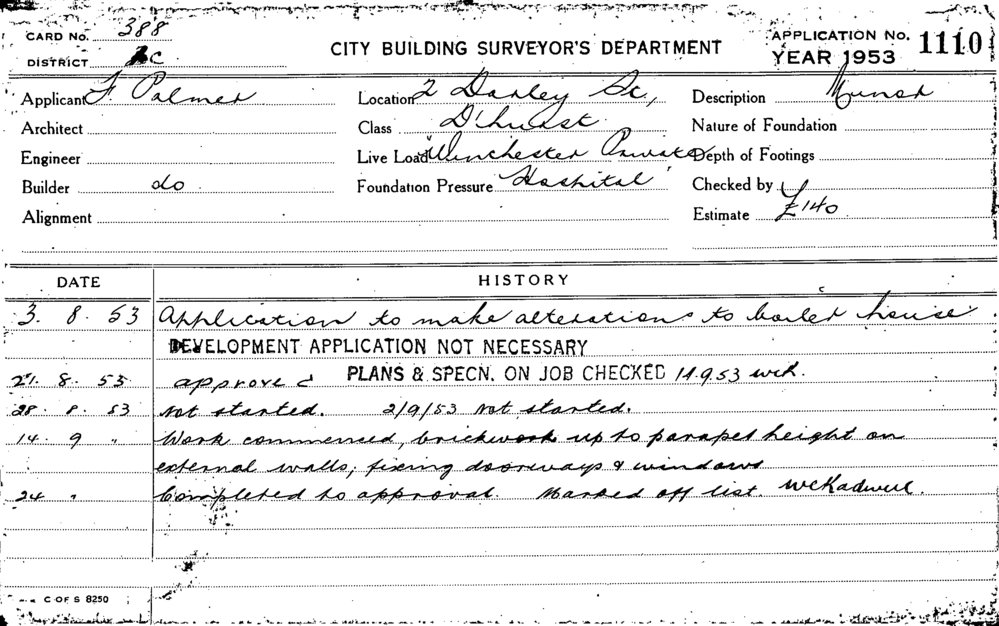 CARD No. 388
DISTRICT
CITY BUILDING SURVEYOR'S DEPARTMENT
APPLICATION No. 1110
YEAR 1953
Applicant F. Palmer
Location 2 Darley St,
Description Minor
Architect
Class D'hurst.
Nature of Foundation
Engineer
Live Load "Winchester Private
Depth of Footings
Builder do
Foundation Pressure Hospital"
Checked by
Alignment
Estimate £140
DATE HISTORY
3. 8. 53 Application to make alterations to boiler house.
DEVELOPMENT APPLICATION NOT NECESSARY
21. 8. 53 approved PLANS & SPECN. ON JOB CHECKED 14.9.53 wck.
28. 8. 53 Not started. 2/9/53 Not started.
14. 9 " Work commenced, brickwork up to parapet height on
external walls, fixing doorways & windows
24 " Completed to approval. Marked off list.
C OF S 8250